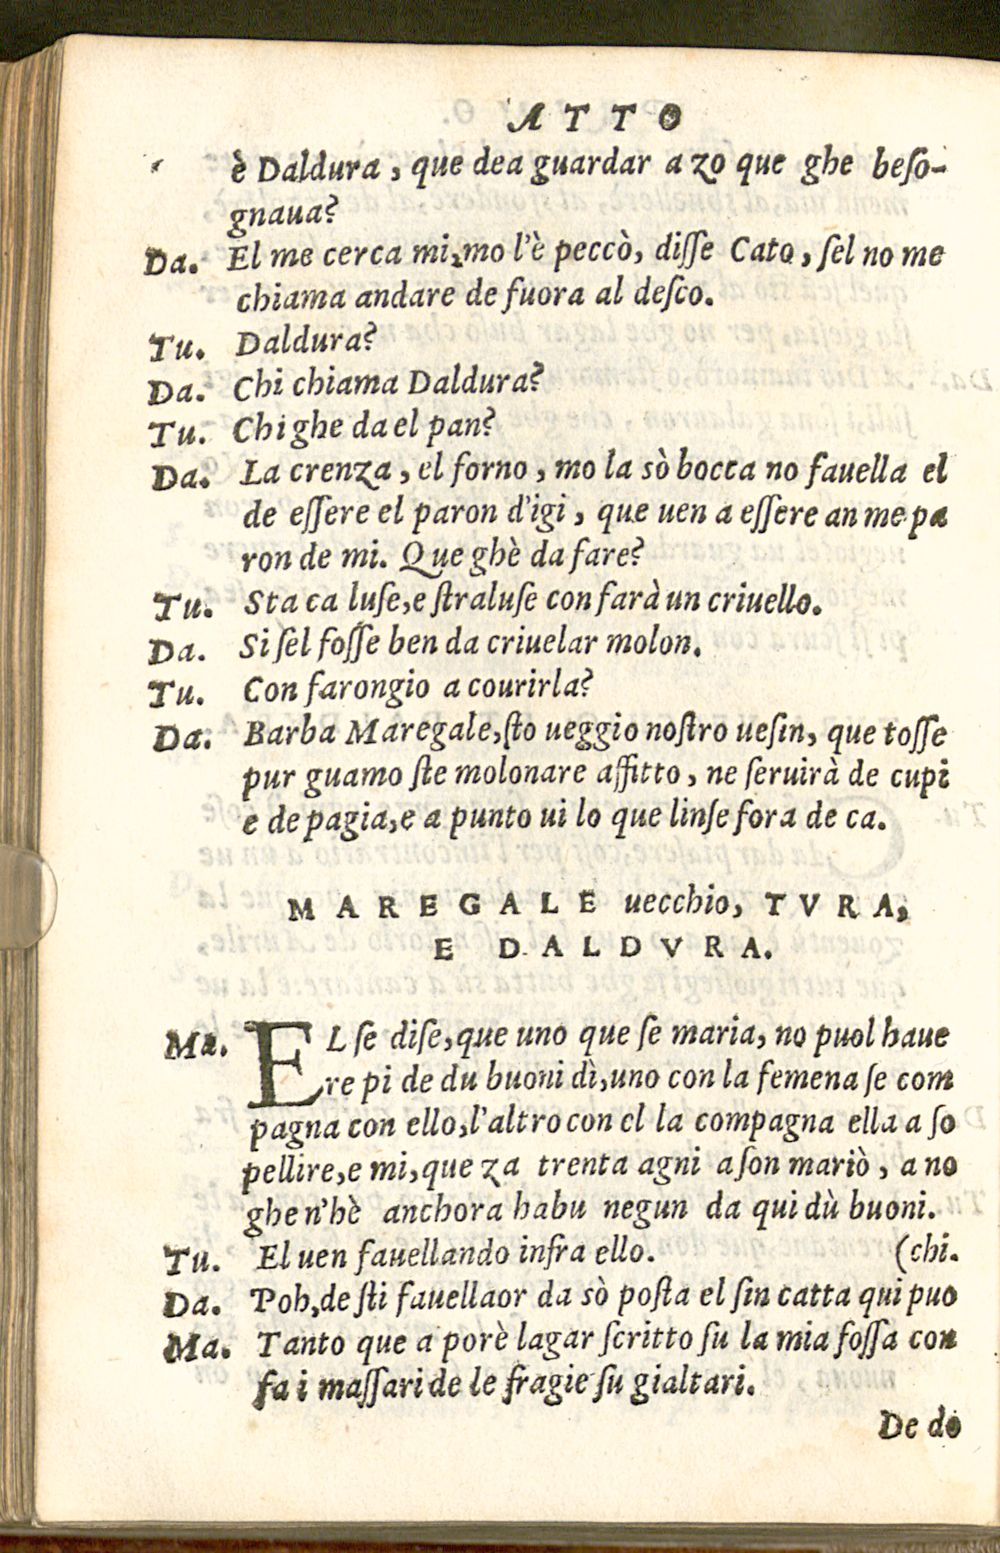 ATTO
è Daldura, que dea guardar a zo que ghe beſo-
gnaua?
Da. El me cerca mi, mo l'è peccò, diſſe Cato, ſel no me
chiama andare de fuora al deſco.
Tu. Daldura?
Da. Chi chiama Daldura?
Tu. Chi ghe da el pan?
Da. La crenza, el forno, mo la sò bocca no fauella el
de eſſere el paron d'igi, que uen a eſſere an me pa
ron de mi. Que ghè da fare?
Tu. Sta ca luſe, e ſtraluſe con farà un criuello.
Da. Si ſel foſſe ben da criuelar molon.
Tu. Con farongio a courirla?
Da. Barba Maregale, ſto ueggio noſtro ueſin, que toſſe
pur guamo ſte molonare affitto, ne ſeruirà de cupi
e de pagia, e a punto ui lo que linſe fora de ca.
MAREGALE uecchio, TVRA,
E DALDVRA.
Ma. EL ſe diſe, que uno que ſe maria, no puol haue
re pi de du buoni dì, uno con la femena ſe com
pagna con ello, l'altro con el la compagna ella a ſo
pellire, e mi, que za trenta agni a ſon mariò, a no
ghe n'hè anchora habu negun da qui dù buoni.
Tu. El uen fauellando infra ello. (chi.
Da. Poh, de ſti fauellaor da sò poſta el ſin catta qui puo
Ma. Tanto que a porè lagar ſcritto ſu la mia foſſa con
fa i maſſari de le fragie ſu gialtari.
De do